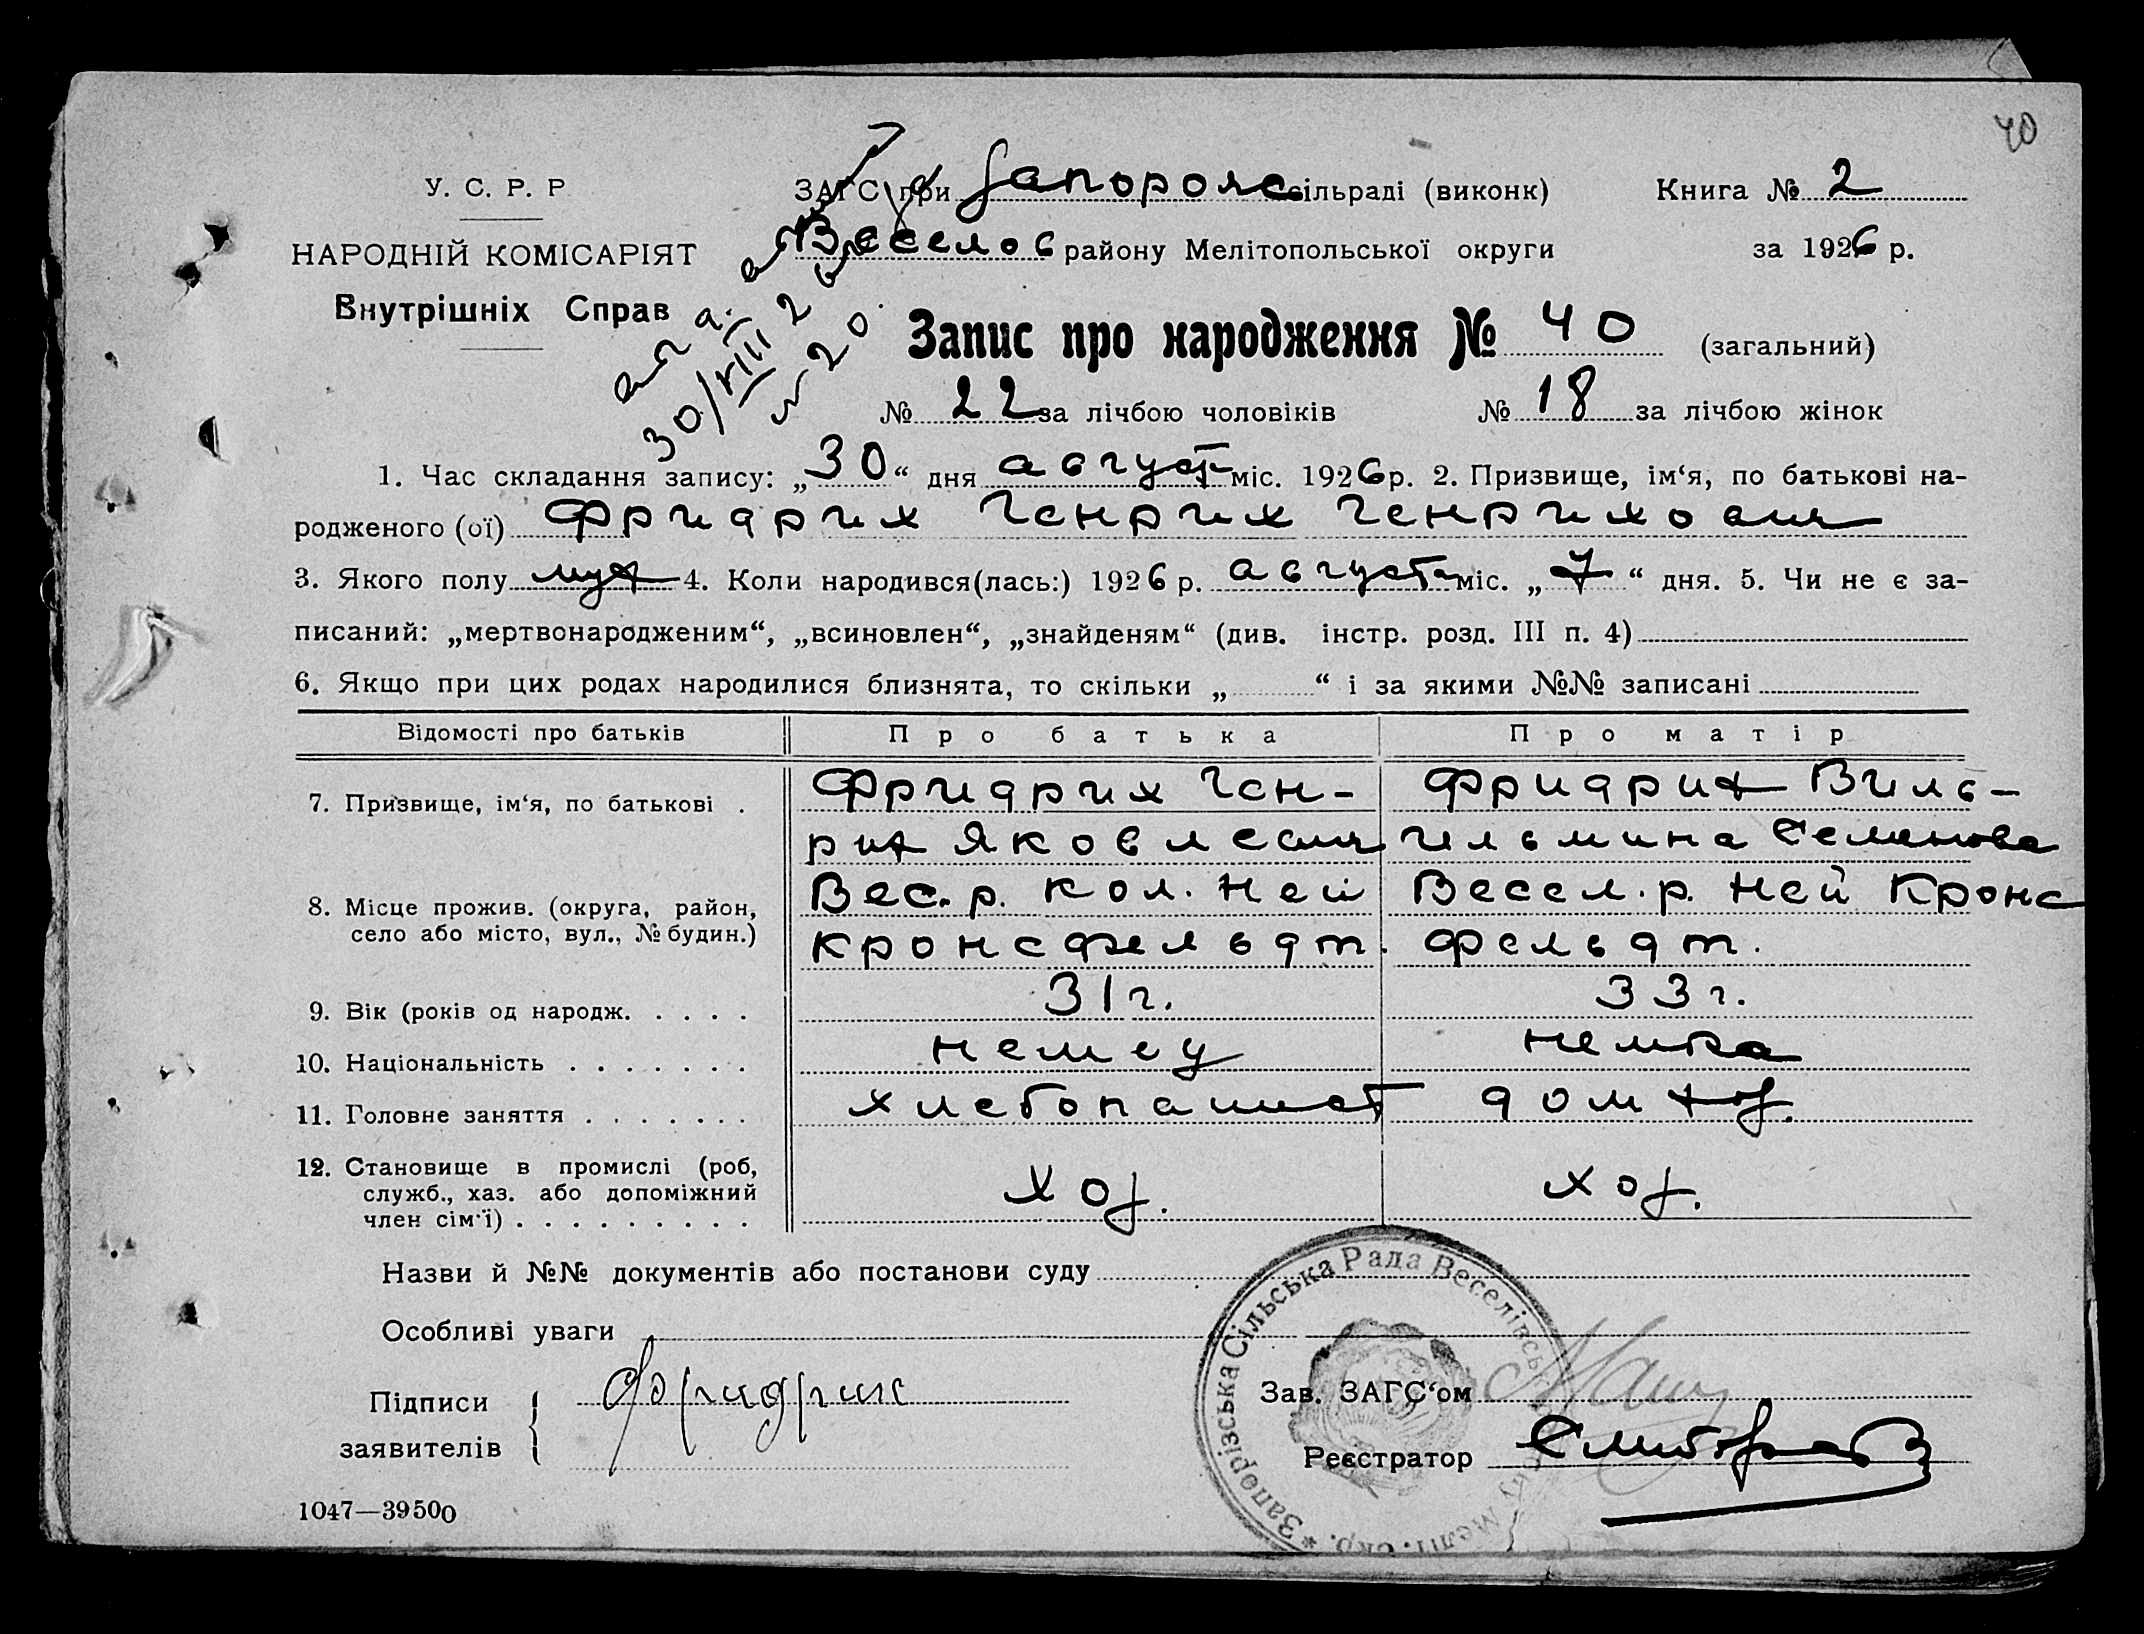 40
У. С. Р. Р
ЗАГС при Запорож сільраді (виконк)
Книга № 2
НАРОДНІЙ КОМІСАРІЯТ
Веселов району Мелітопольської округи
за 1926 р.
Внутрішніх Справ
30/VIII 2
№ 20.
Запис про народження № 40 (загальний)
№ 22 за лічбою чоловіків № 18 за лічбою жінок
1. Час складання запису: „30“ дня август міс. 1926 р. 2. Призвище, ім‘я, по батькові на-
родженого (ої) Фридрих Генрих Генрихович
3. Якого полу муж 4. Коли народився(лась:) 1926 р. августа міс. „7“ дня. 5. Чи не є за-
писаний: „мертвонародженим“, „всиновлен“, „знайденям“ (див. інстр. розд. III п. 4)
6. Якщо при цих родах народилися близнята, то скільки „ “ і за якими №№ записані
Відомості про батьків Про батька Про матір
7. Призвище, ім‘я, по батькові . Фридрих Ген- Фридрих Виль-
рих Яковлевич гильмина Семенова
8. Місце прожив. (округа, район, село або місто, вул., № будин.) Вес. р. кол. Ней Весел. р. Ней Кронс
кронсфельдт. фельдт.
9. Вік (років од народж. . . . . 31 г. 33 г.
10. Національність . . . . . . . немец немка
11. Головне заняття . . . . . . . хлебопашест дом хоз.
12. Становище в промислі (роб, служб., хаз. або допоміжний член сім‘ї) . . . . . . . . . хоз. хоз.
Назви й №№ документів або постанови суду
Особливі уваги
Підписи заявителів Фридрих
Зав. ЗАГС‘ом
Реєстратор
Запорізська Сільська Рада Веселівсь Меліт. окр.
1047—39500